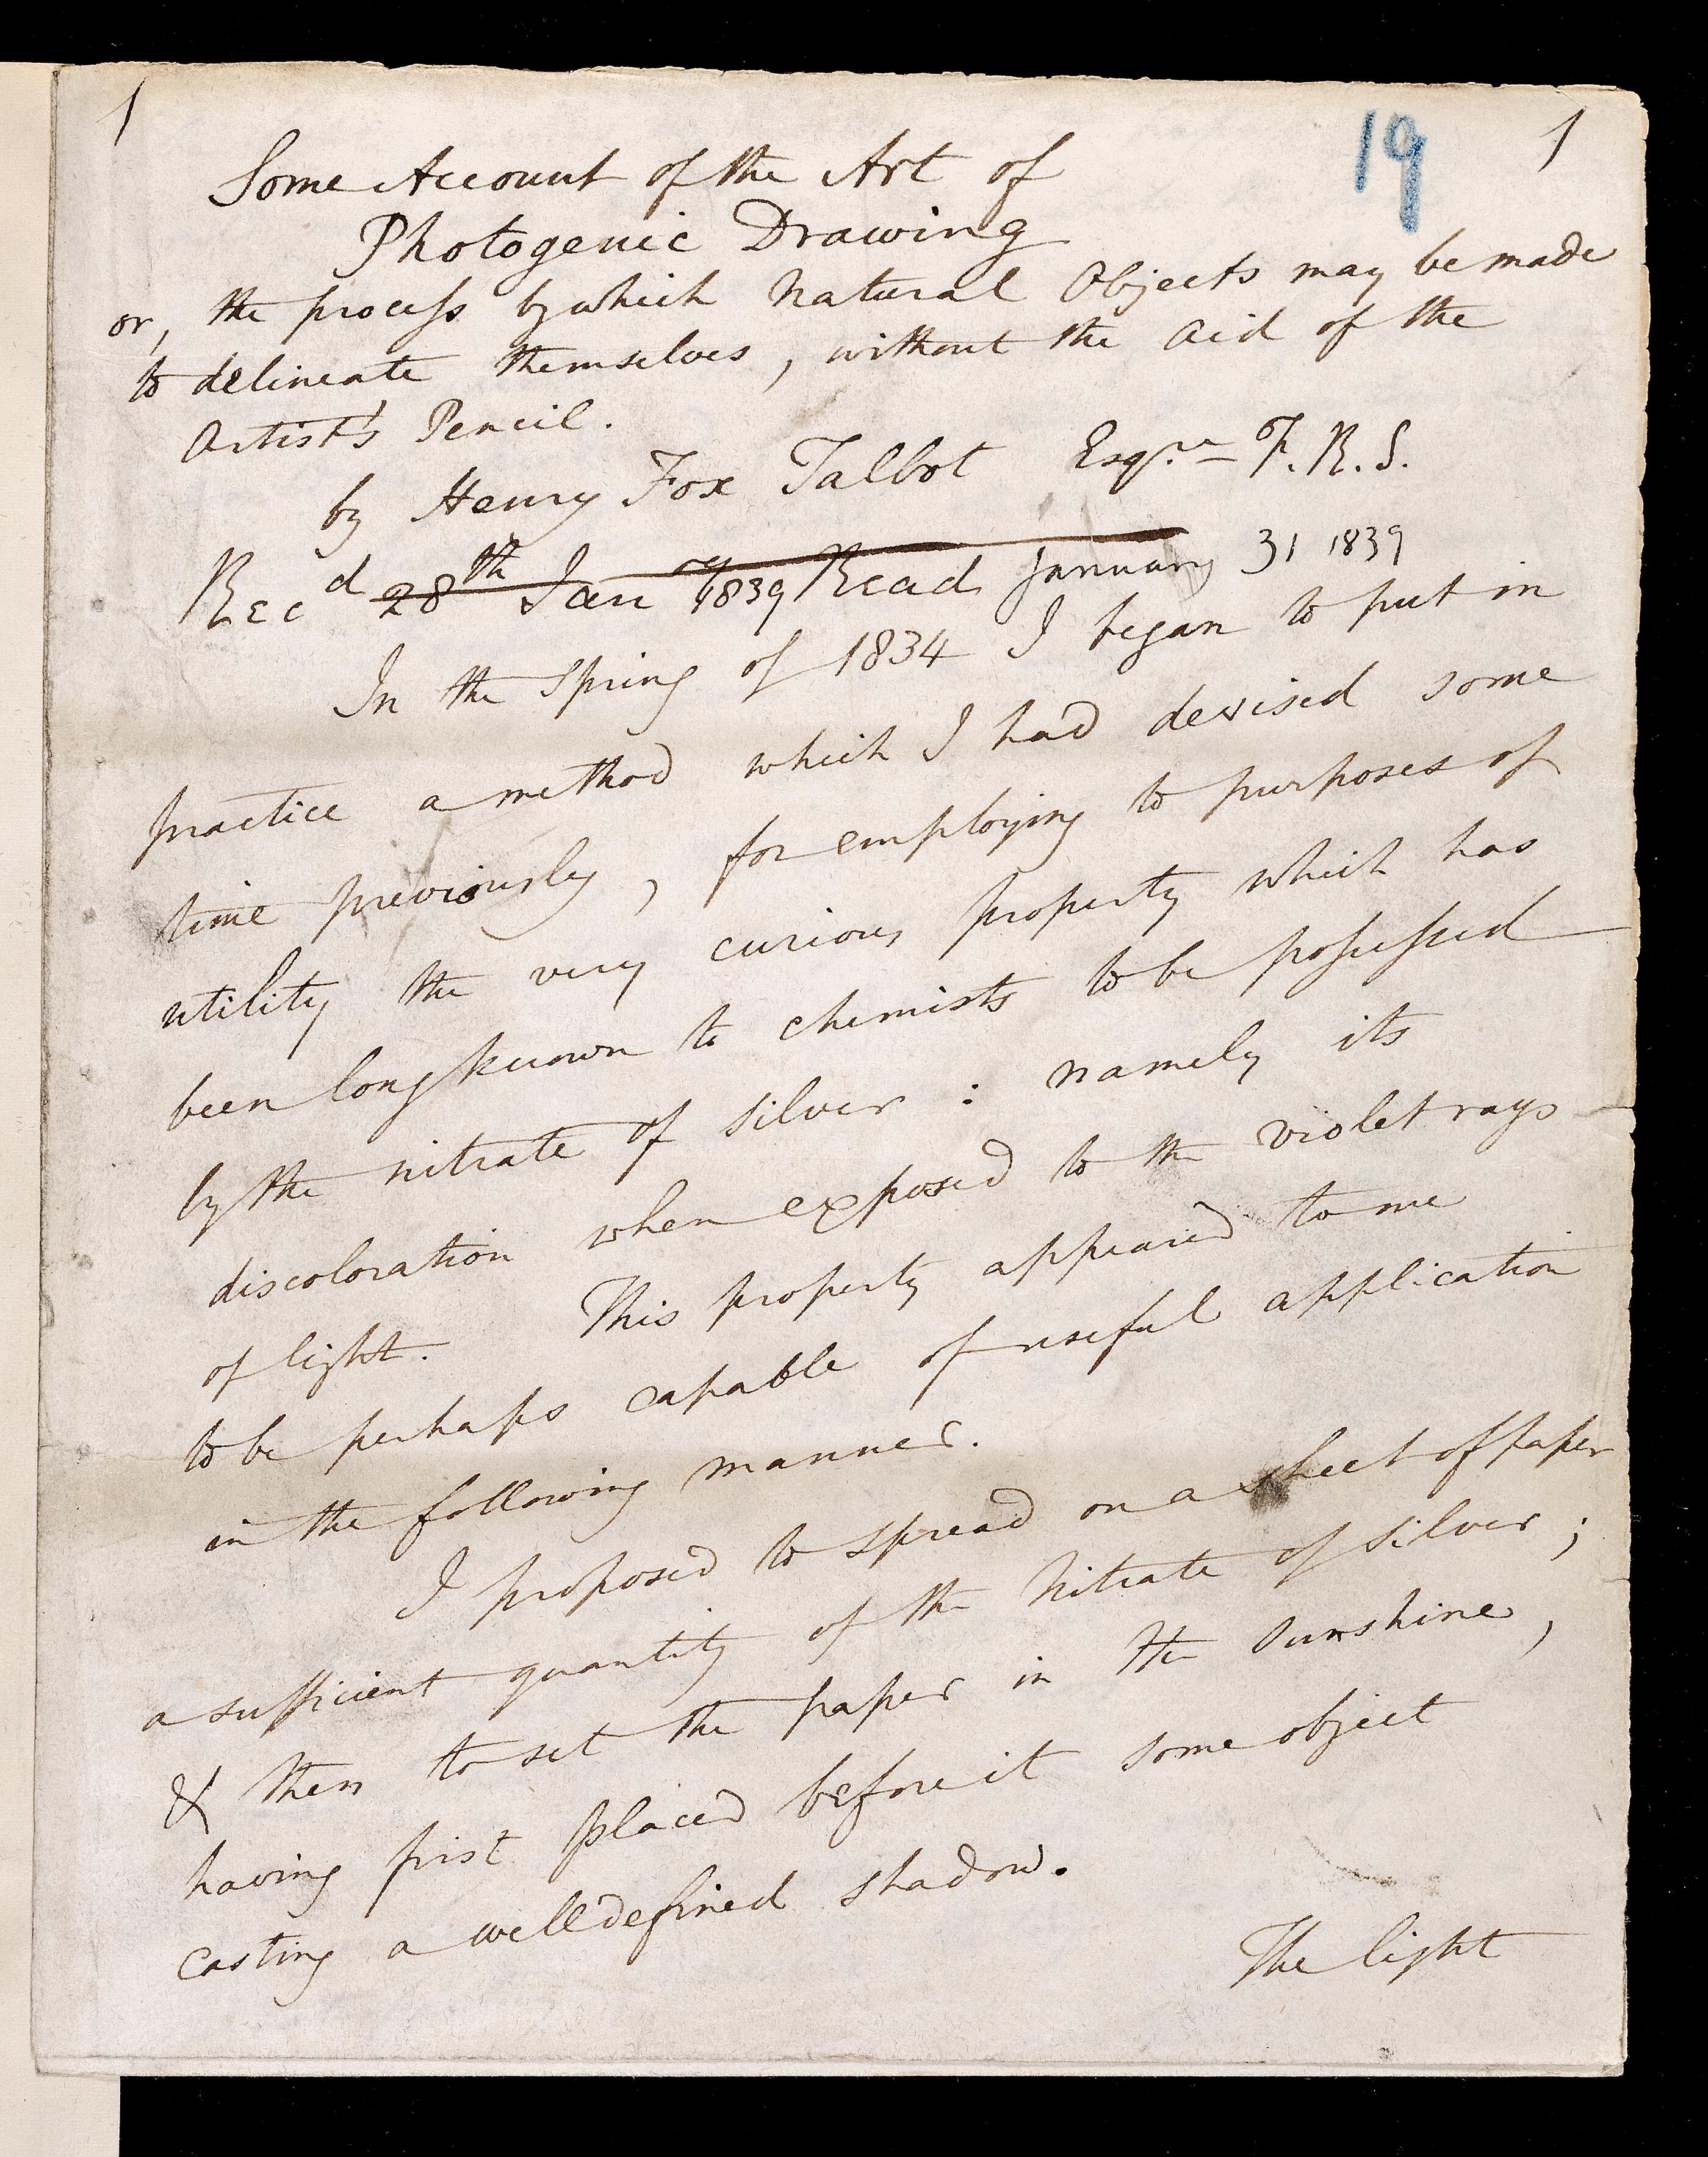 1 19 1
Some Account of the Art of
Photogenic Drawing
or, the proceſs by which Natural Objects may be made
to delineate themselves, without the aid of the
Artist's Pencil.
by Henry Fox Talbot Esqre F.R.S.
Recd 28th Jany 1839 Read January 31 1839
In the Spring of 1834 I began to put in
practice a method which I had devised some
time previously, for employing to purposes of
utility the very curious property which has
been long known to chemists to be poſseſsed
by the nitrate of silver : namely its
discoloration when exposed to the violet rays
of light. This property appeared to me
to be perhaps capable of useful application
in the following manner.
I proposed to spread on a sheet of paper
a sufficient quantity of the Nitrate of silver ;
& then to set the paper in the sunshine,
having first placed before it some object
casting a well defined shadow.
The light